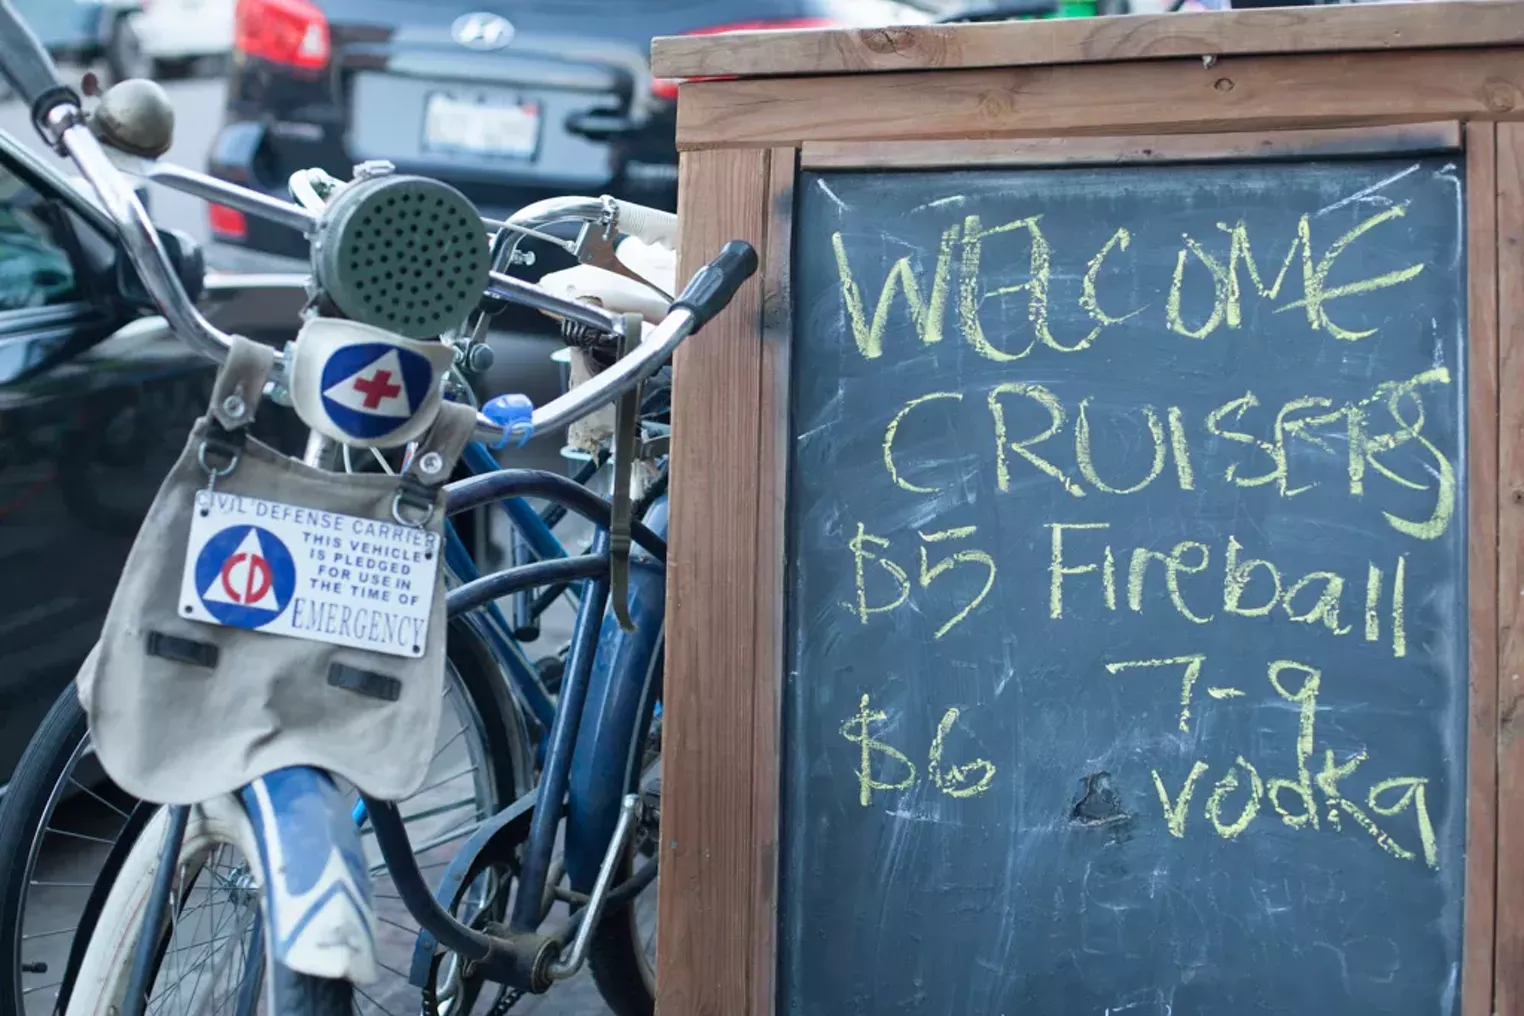 CIVIL DEFENSE CARRIER
THIS VEHICLE
IS PLEDGED
FOR USE IN
THE TIME OF
EMERGENCY
CD
WELCOME
CRUISERS
$5 Fireball
7-9
$6 vodka